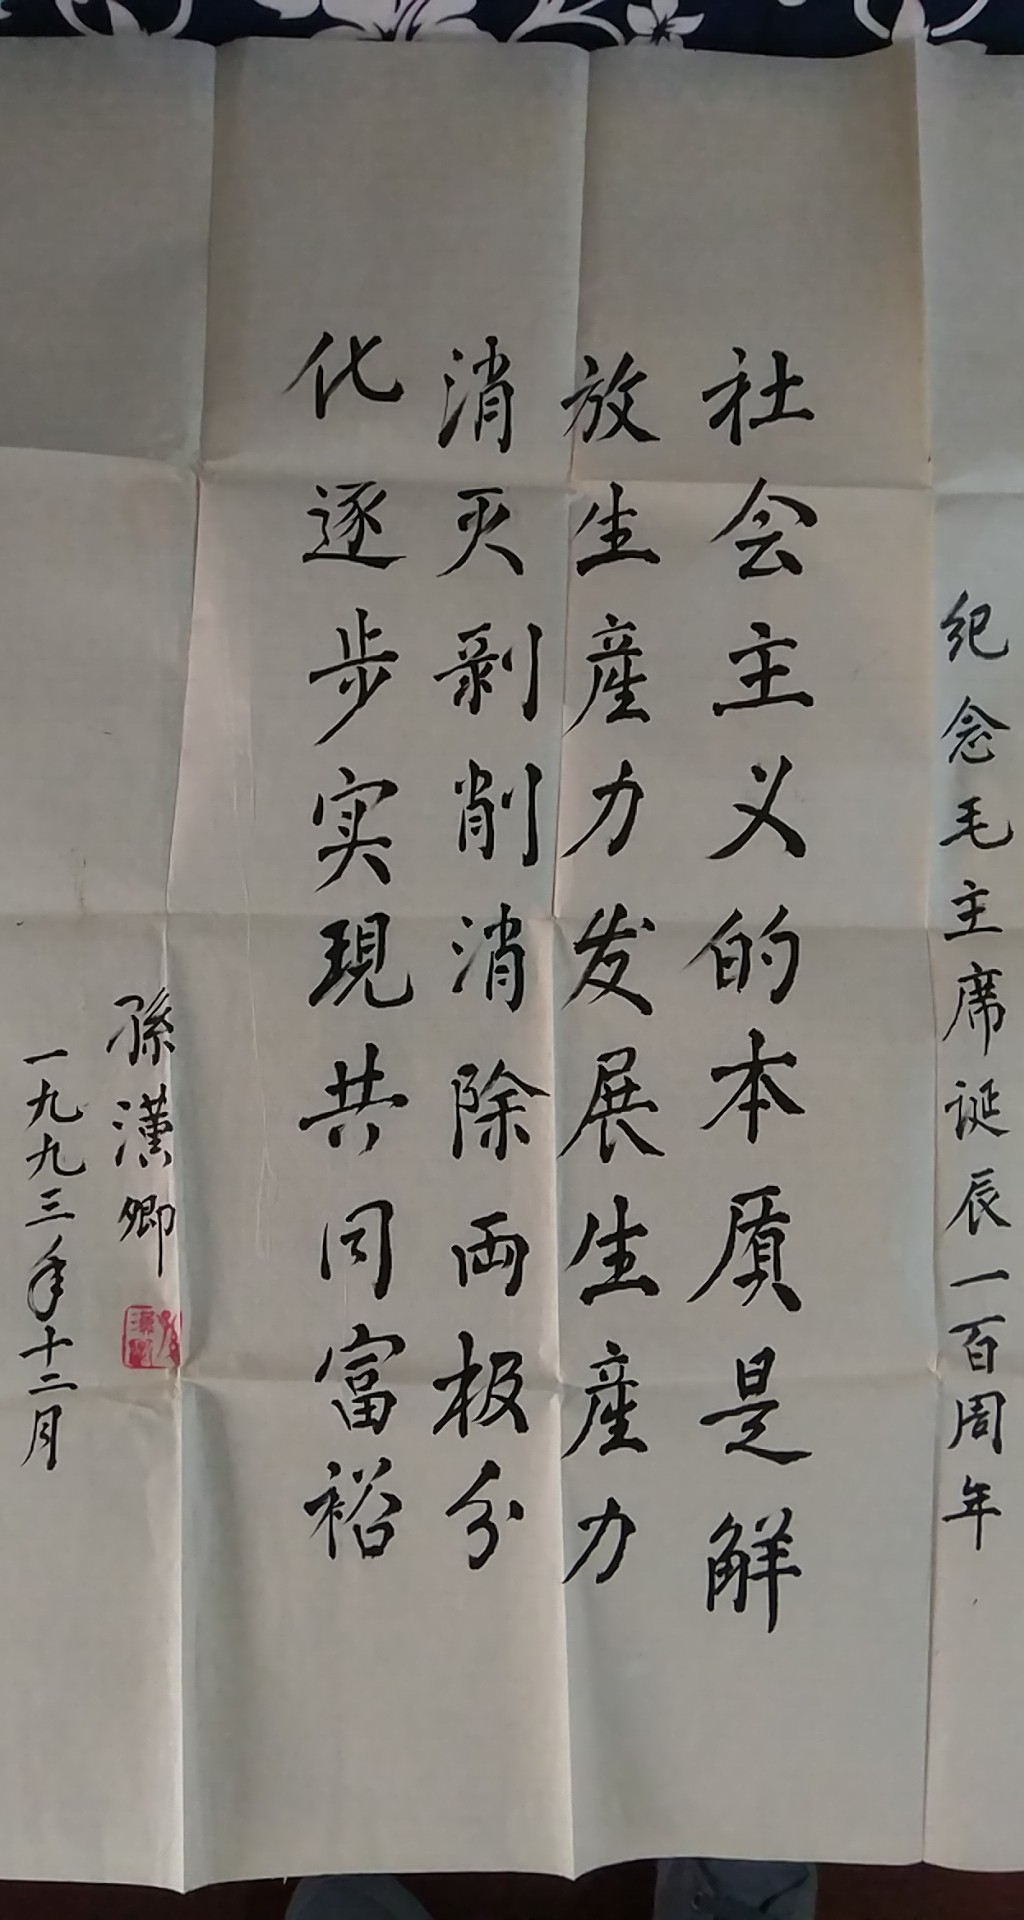 纪念毛主席诞辰一百周年
社会主义的本质是解
放生産力发展生産力
消灭剥削消除两极分
化逐步实現共同富裕
孫漢卿
一九九三年十二月